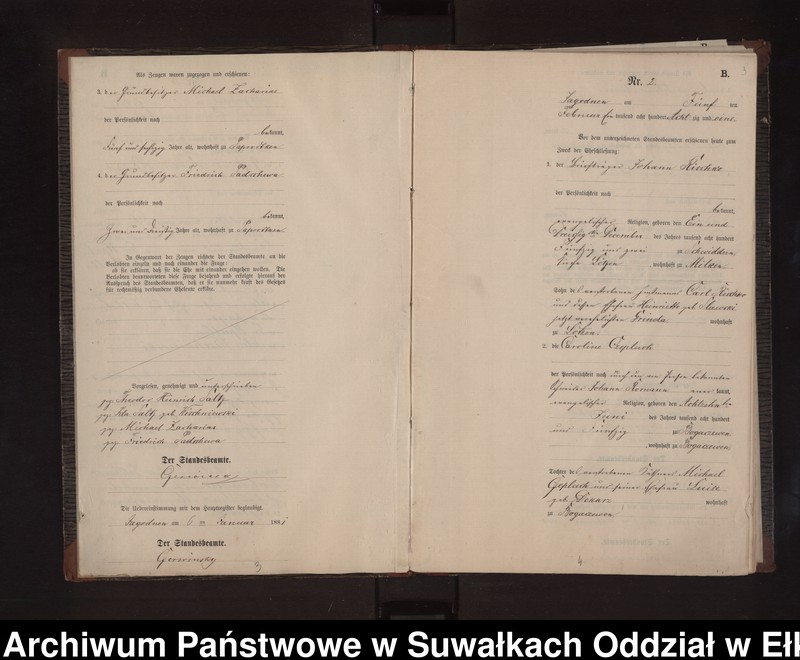 Als Zeugen waren zugezogen und erschienen:
3. der Grundbesitzer Michael Zacharias
der Persönlichkeit nach
bekannt,
Fünf und fünfzig Jahre alt, wohnhaft zu Paprodtken
4. der Grundbesitzer Friedrich Padschewa
der Persönlichkeit nach
bekannt,
Zwei und dreißig Jahre alt, wohnhaft zu Paprodtken
In Gegenwart der Zeugen richtete der Standesbeamte an die
Verlobten einzeln und nach einander die Frage:
ob sie erklären, daß sie die Ehe mit einander eingehen wollen. Die
Verlobten beantworteten diese Frage bejahend und erfolgte hierauf der
Ausspruch des Standesbeamten, daß er sie nunmehr kraft des Gesetzes
für rechtmäßig verbundene Eheleute erkläre.
Vorgelesen, genehmigt und unterschrieben
gez. Theodor Heinrich Saltz
gez. Saltz geb.
gez. Michael Zacharias
gez. Friedrich Padschewa
Der Standesbeamte.
Gerwinsky
Die Uebereinstimmung mit dem Hauptregister beglaubigt.
Jagodnen am 6ten Januar 1881
Der Standesbeamte.
Gerwinsky
3
B.
Nr. 2.
Jagodnen am Fünf ten
Februar tausend acht hundert Acht zig und eins
Vor dem unterzeichneten Standesbeamten erschienen heute zum
Zweck der Eheschließung:
1. der Johann
der Persönlichkeit nach
bekannt,
evangelischer Religion, geboren den Ein und
dreißigsten Dezember des Jahres tausend acht hundert
Fünfzig und zwei zu Schwiddern
Kreis Lötzen, wohnhaft zu Milken
Sohn des verstorbenen Carl
und dessen Ehefrau Henriette geb.
jetzt verehelichten Grinda wohnhaft
zu Lötzen
2. die Caroline Czepluch
der Persönlichkeit nach durch den von Person bekannten
Schneider Johann Romann anerkannt,
evangelischer Religion, geboren den Achtzehnten
Juni des Jahres tausend acht hundert
und Fünfzig zu Bogaczewen
, wohnhaft zu Bogaczewen
Tochter des verstorbenen Michael
Czepluch und seiner Ehefrau Luise
geb. wohnhaft
zu Bogaczewen
4
Archiwum Państwowe w Suwałkach Oddział w Ełk